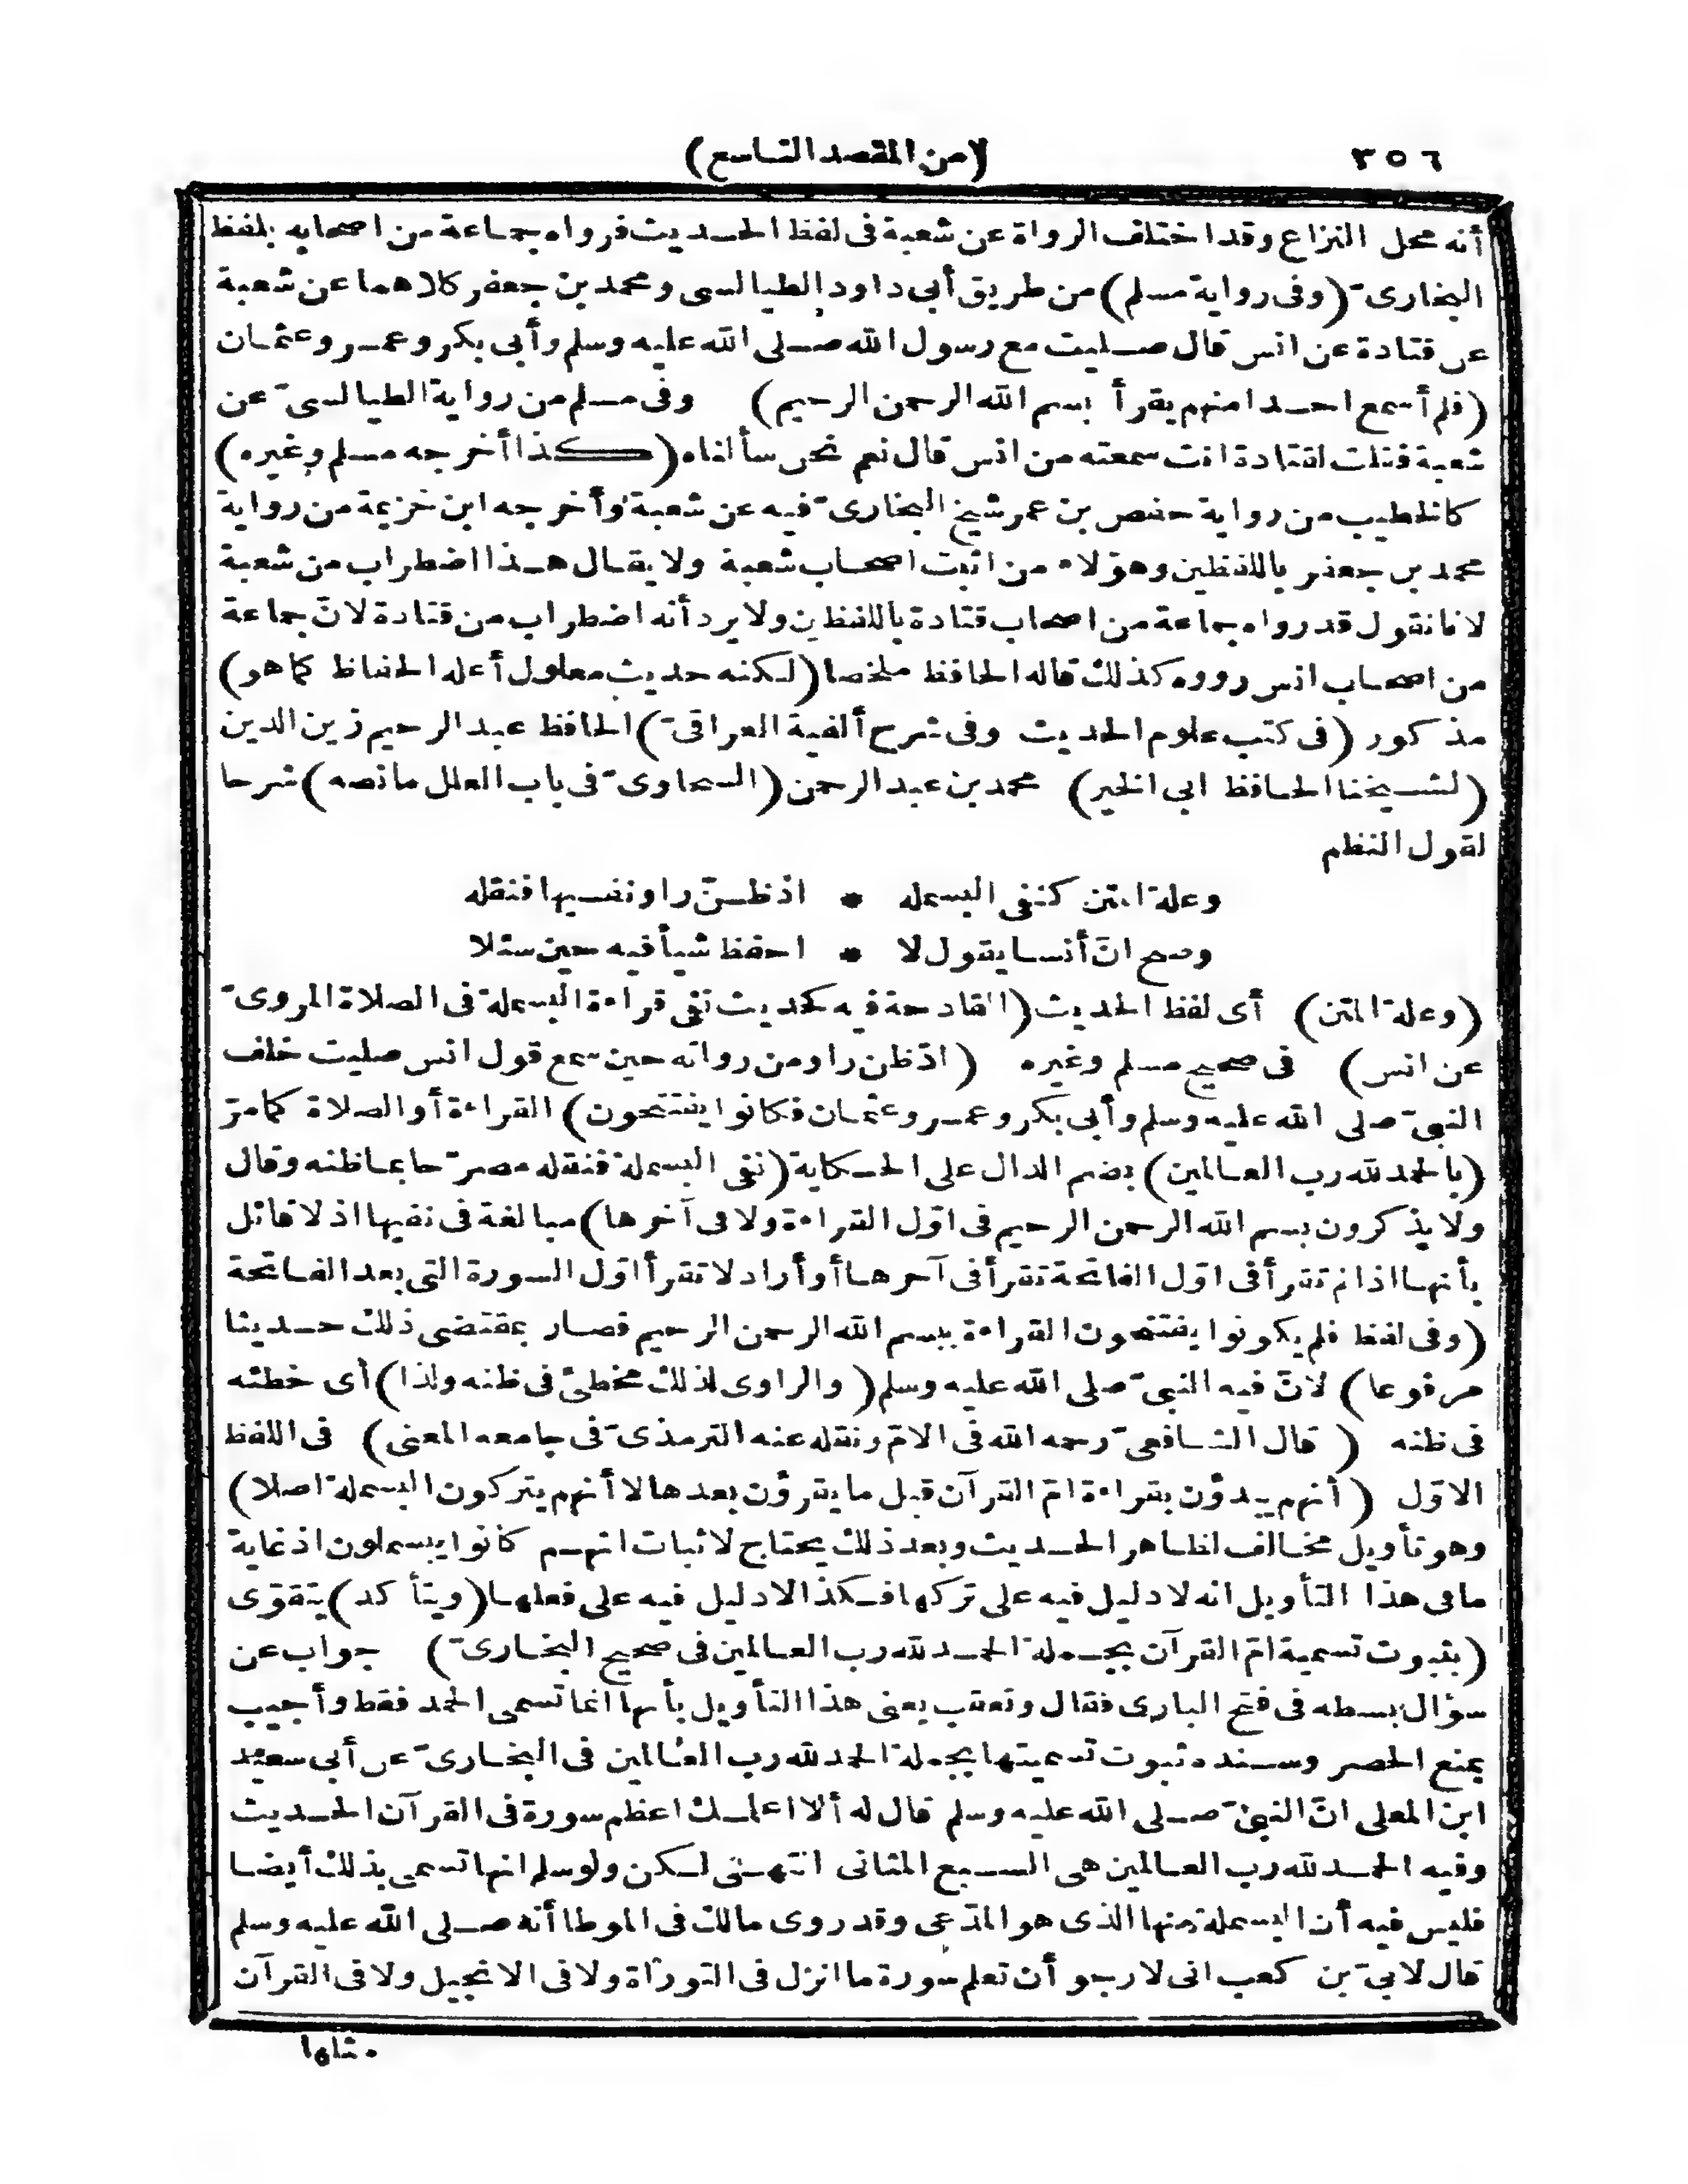 ٣٥٦
(من المقصد التاسع)
أنه محل النزاع وقد اختلف الرواة عن شعبة فى لفظ الحديث فرواه جماعة من اصحابه بلفظ
البخارىّ (وفى رواية مسلم) من طريق أبى داود الطيالسى ومحمد بن جعفر كلاهما عن شعبة
عن قتادة عن انس قال صليت مع رسول الله صلى الله عليه وسلم وأبى بكر وعمر وعثمان
(فلم أسمع احدا منهم يقرأ بسم الله الرحمن الرحيم) وفى مسلم من رواية الطيالسىّ عن
شعبة فقلت لقتادة انت سمعته من انس قال نعم نحن سألناه (كذا أخرجه مسلم وغيره)
كالخطيب من رواية حفص بن عمر شيخ البخارىّ فيه عن شعبة وأخرجه ابن خزيمة من رواية
محمد بن جعفر باللفظين وهؤلاء من اثبت اصحاب شعبة ولا يقال هذا اضطراب من شعبة
لانا نقول قد رواه جماعة من اصحاب قتادة باللفظين ولا يرد أنه اضطراب من قتادة لانّ جماعة
من اصحاب انس رووه كذلك قاله الحافظ ملخصا (لكنه حديث معلول أعله الحفاظ كما هو)
مذكور (فى كتب علوم الحديث وفى شرح ألفية العراقىّ) الحافظ عبد الرحيم زين الدين
(لشيخنا الحافظ ابى الخير) محمد بن عبد الرحمن (السخاوىّ فى باب العلل مانصه) شرحا
لقول النظم
وعلة المتن كنفى البسمله * اذ ظنّ راو نفيها فنقله
وصح انّ أنسا يقول لا * احفظ شيأ فيه حين سئلا
(وعلة المتن) أى لفظ الحديث (القادحة فيه كحديث نفى قراءة البسملة فى الصلاة المروىّ
عن انس) فى صحيح مسلم وغيره (اذ ظن راو من رواته حين سمع قول انس صليت خلف
النبىّ صلى الله عليه وسلم وأبى بكر وعمر وعثمان فكانوا يفتتحون) القراءة أو الصلاة كما مرّ
(بالحمد لله رب العالمين) بضم الدال على الحكاية (نفى البسملة فنقله مصرّحا بما ظنه وقال
ولا يذكرون بسم الله الرحمن الرحيم فى اوّل القراءة ولا فى آخرها) مبالغة فى نفيها اذ لا قائل
بأنها اذا لم تقرأ فى اوّل الفاتحة تقرأ فى آخرها أو أراد لا تقرأ اوّل السورة التى بعد الفاتحة
(وفى لفظ فلم يكونوا يفتتحون القراءة ببسم الله الرحمن الرحيم فصار بمقتضى ذلك حديثا
مرفوعا) لانّ فيه النبىّ صلى الله عليه وسلم (والراوى لذلك مخطئ فى ظنه ولذا) أى خطئه
فى ظنه (قال الشافعىّ رحمه الله فى الامّ ونقله عنه الترمذىّ فى جامعه المعنى) فى اللفظ
الاوّل (أنهم يبدؤن بقراءة امّ القرآن قبل ما يقرؤن بعدها لا أنهم يتركون البسملة اصلا)
وهو تأويل مخالف لظاهر الحديث وبعد ذلك يحتاج لاثبات انهم كانوا يبسملون اذ غاية
ما فى هذا التأويل انه لا دليل فيه على تركها فكذا لا دليل فيه على فعلها (ويتأكد) يتقوّى
(بثبوت تسمية امّ القرآن بجملة الحمد لله رب العالمين فى صحيح البخارىّ) جواب عن
سؤال بسطه فى فتح البارى فقال وتعقب يعنى هذا التأويل بأنها انما تسمى الحمد فقط وأجيب
بمنع الحصر وسنده ثبوت تسميتها بجملة الحمد لله رب العالمين فى البخارىّ عن أبى سعيد
ابن المعلى انّ النبىّ صلى الله عليه وسلم قال له ألا اعلمك اعظم سورة فى القرآن الحديث
وفيه الحمد لله رب العالمين هى السبع المثانى انتهى لكن ولو سلم انها تسمى بذلك أيضا
فليس فيه أن البسملة منها الذى هو المدّعى وقد روى مالك فى الموطا أنه صلى الله عليه وسلم
قال لابىّ بن كعب انى لارجو أن تعلم سورة ما انزل فى التوراة ولا فى الانجيل ولا فى القرآن
مثلها